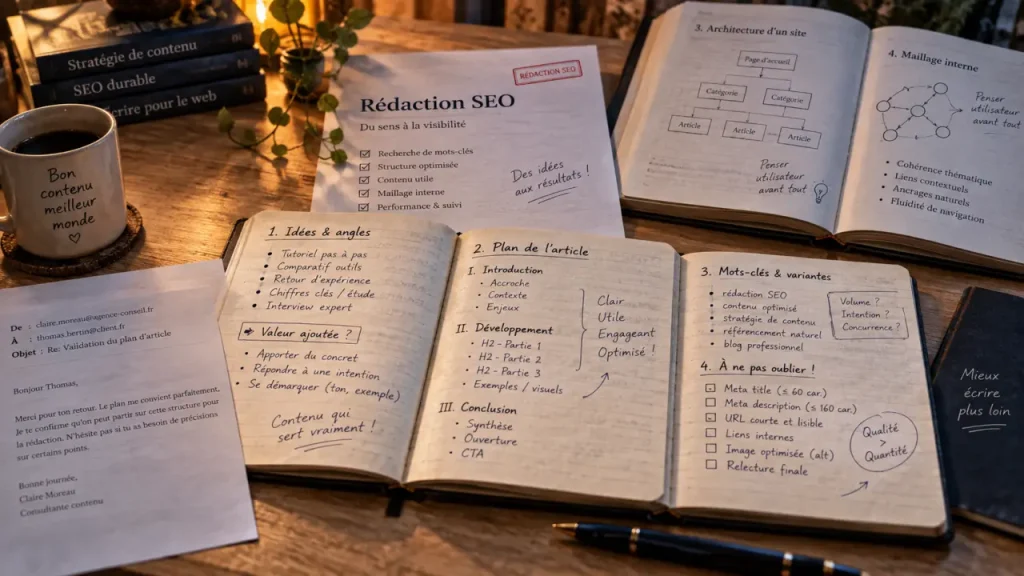 Stratégie de contenu
SEO durable
écrire pour le web
Bon
contenu
meilleur
monde
RÉDACTION SEO
Rédaction SEO
Du sens à la visibilité
Recherche de mots-clés
Structure optimisée
Contenu utile
Maillage interne
Performance & suivi
Des idées
aux résultats !
3. Architecture d'un site
Page d'accueil
Catégorie
Catégorie
Article
Article
Article
Penser
utilisateur
avant tout
4. Maillage interne
Penser
utilisateur
avant tout
Cohérence thématique
Liens contextuels
Ancrages naturels
Fluidité de navigation
De : claire.moreau@agence-conseil.fr
À : thomas.bertin@client.fr
Objet : Re: Validation du plan d'article
Bonjour Thomas,
Merci pour ton retour. Le plan me convient parfaitement.
Je te confirme qu'on peut partir sur cette structure pour
la rédaction. N'hésite pas si tu as besoin de précisions
sur certains points.
Bonne journée,
Claire Moreau
Consultante contenu
1. Idées & angles
Tutoriel pas à pas
Comparatif outils
Retour d'expérience
Chiffres clés / étude
Interview expert
Valeur ajoutée ?
Apporter du concret
Répondre à une intention
Se démarquer (ton, exemple)
Contenu qui
sert vraiment !
2. Plan de l'article
I. Introduction
Accroche
Contexte
Enjeux
II. Développement
H2 - Partie 1
H2 - Partie 2
H2 - Partie 3
Exemples / visuels
III. Conclusion
Synthèse
Ouverture
CTA
Clair
Utile
Engageant
Optimisé !
3. Mots-clés & variantes
rédaction SEO
contenu optimisé
stratégie de contenu
référencement naturel
blog professionnel
Volume ?
Intention ?
Concurrence ?
4. À ne pas oublier !
Meta title (≤ 60 car.)
Meta description (≤ 160 car.)
URL courte et lisible
Liens internes
Image optimisée (alt)
Relecture finale
Qualité
>
Quantité
Mieux
écrire
plus loin